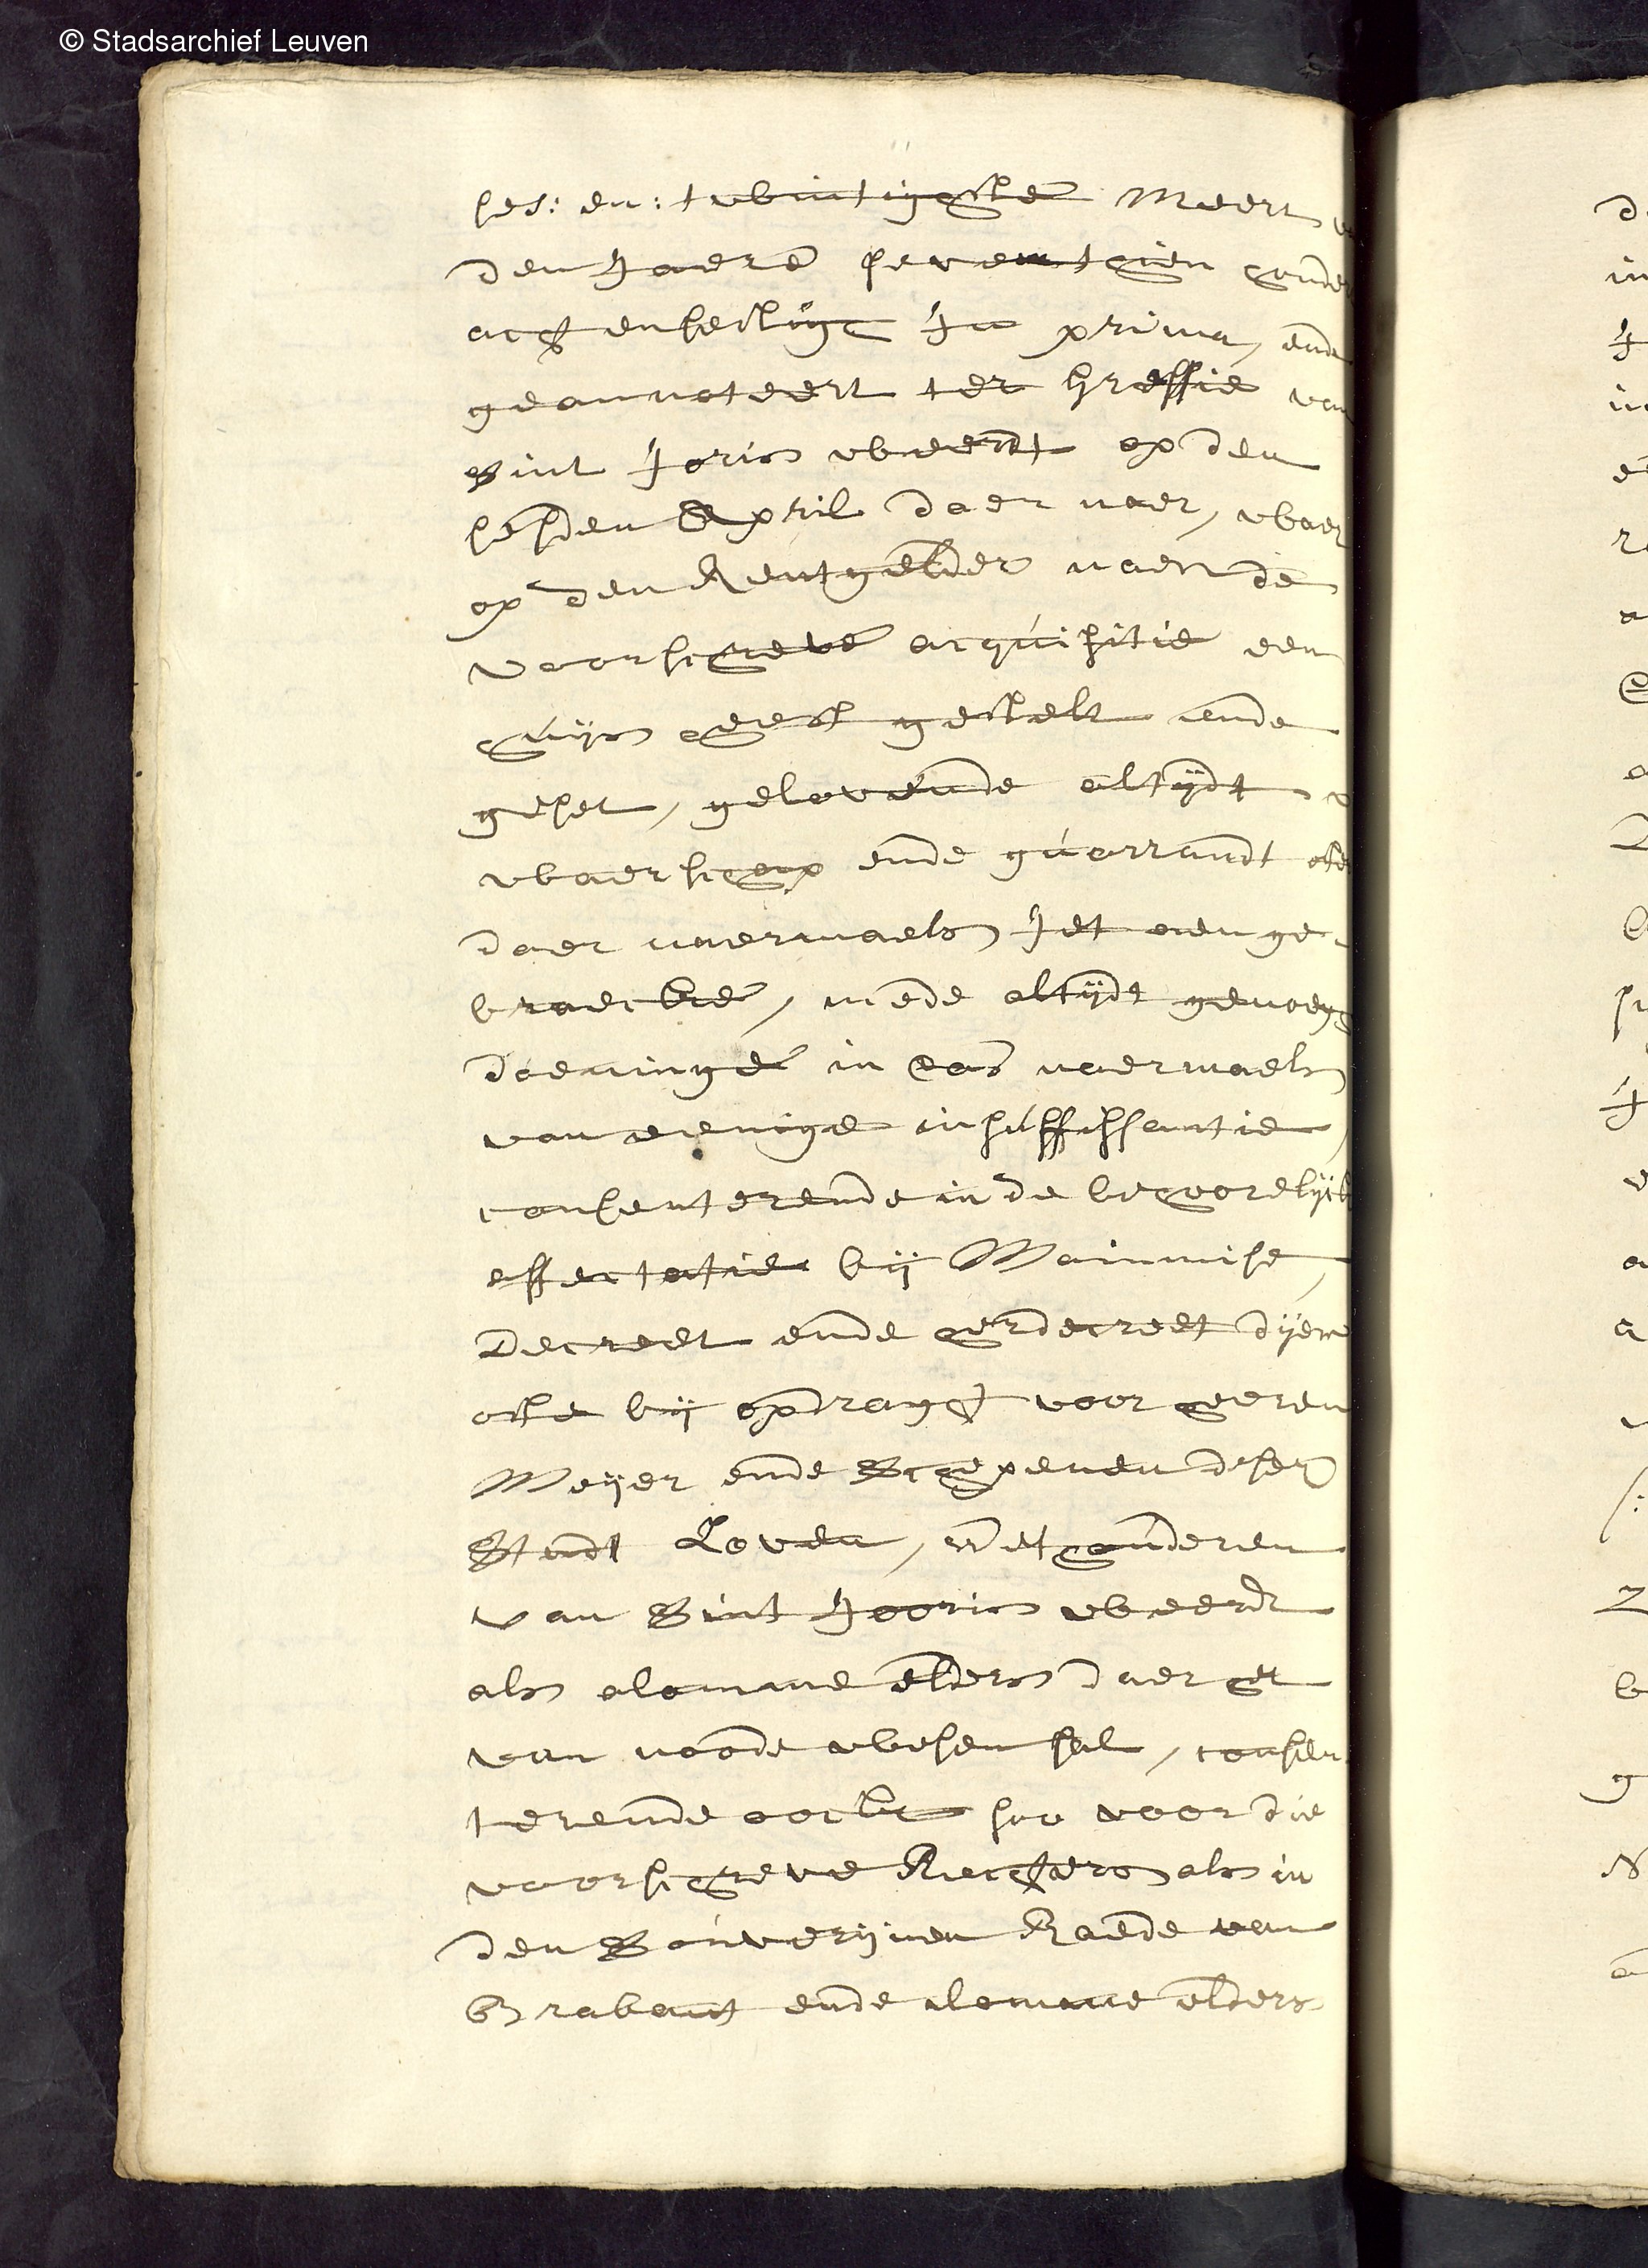 © Stadsarchief Leuven
ses: en: twintigsten Meert
den Jaere seventhien hondert
achtensestigh In prima, ende
geannoteert ter Greffie van
Sint Joris weert op den
sesden April daer naer, waer
op den Rentgelder naer de
voorschreve acquisitie een
huijs heeft gestelt ende
geset, gelovende altijdt
waerschap ende guarrandt ofte
daer naermaels Jet aen ge-
braecke, mede altijdt genoegh
doeninge in cas naermaels
van eenige insuffissantie,
consenterende in de behoorelijcke
affectatie bij Mainmise,
Decreet ende herdecreet dijer
ofte bij opdraght voor heeren
Meijer ende Schepenen deser
Stadt Loven, Wethouderen
van Sint Jooris weerdt
als alomme elders daer het
van noode wesen sal, consen-
terende oock soo voor die
voorschreve Rechters als in
den Souverijnen Raede van
Brabant ende alomme elders